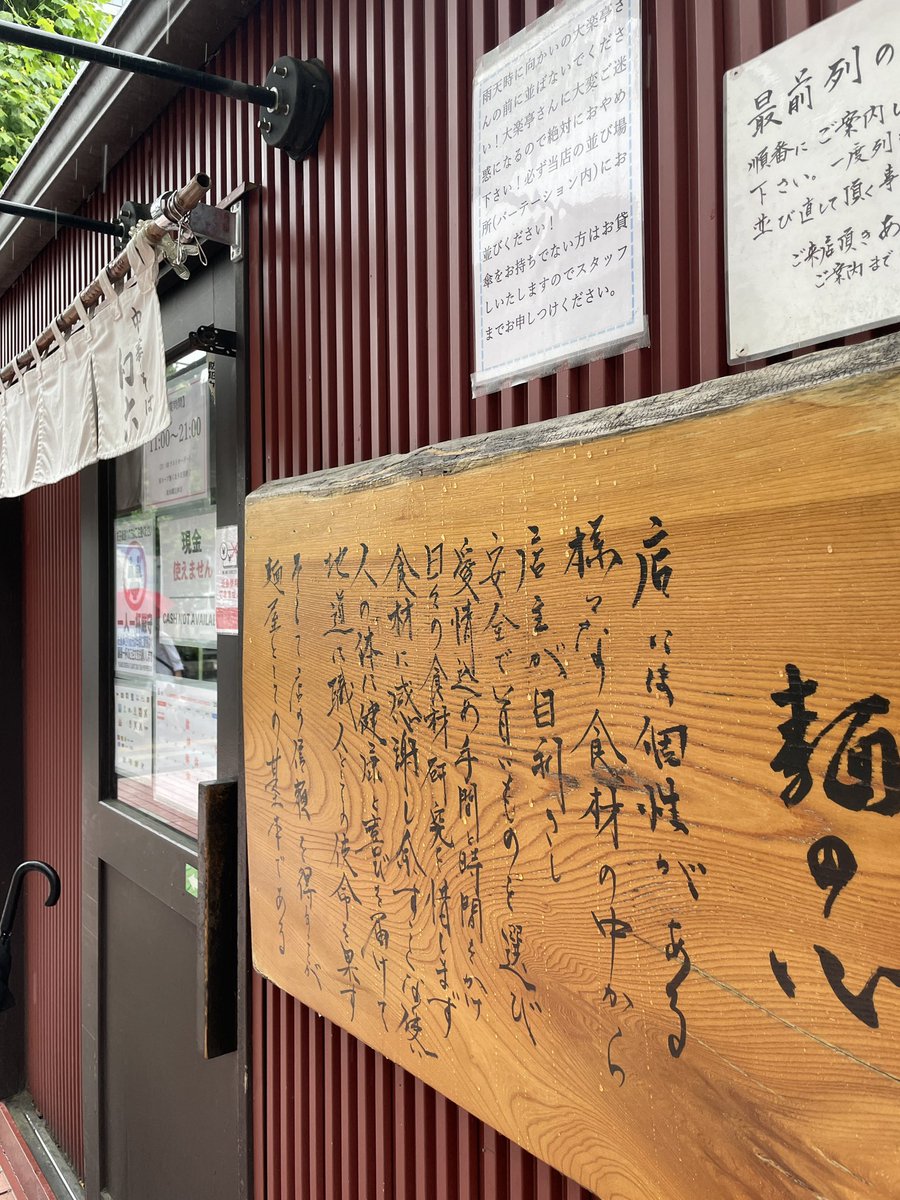 雨天時に向かいの大楽亭さ
んの前に並ばないでくださ
い！大楽亭さんに大変ご迷
惑になるので絶対におやめ
下さい！必ず当店の並び場
所(パーテーション内)にお
並びください！
傘をお持ちでない方はお貸
しいたしますのでスタッフ
までお申しつけください。
最前列の
順番にご案内し
下さい。一度列
並び直して頂く事
ご来店頂きあ
ご案内まで
麺の心
店には個性がある
様々な食材の中から
店主が目利きし
安全で旨いものを選び
愛情込め手間と時間をかけ
日々の食材研究を惜しまず
食材に感謝し余すとなく使い
人の体に健康と喜びを届けて
地道に職人としての使命を果す
そして店の信頼を得るが
麺屋としての基本である
中華そば
11:00〜21:00
現金
使えません
CASH NOT AVAILA